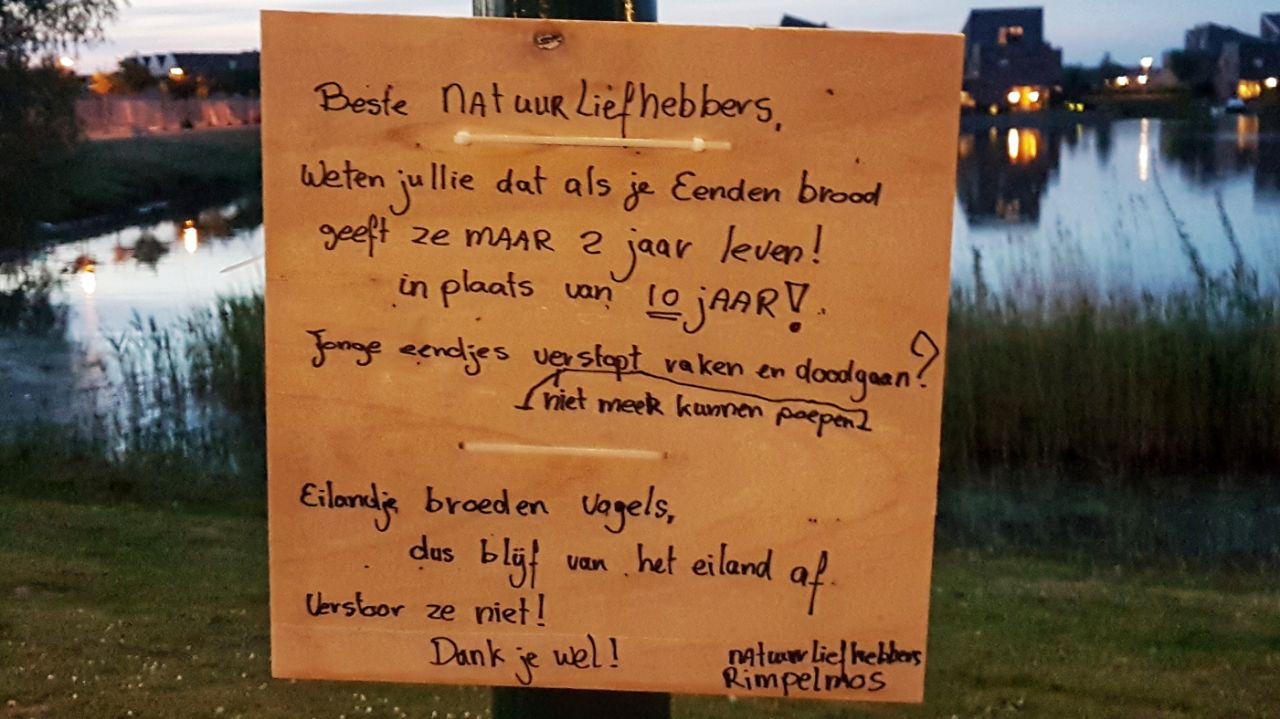 Beste NAtuurLiefhebbers,
Weten jullie dat als je Eenden brood
geeft ze MAAR 2 jaar leven!
in plaats van 10 jAAR!
Jonge eendjes verstopt raken en doodgaan?
niet meer kunnen poepen
Eilandje broeden vogels,
dus blijf van het eiland af
Verstoor ze niet!
Dank je wel!
NAtuurLiefhebbers
Rimpelmos